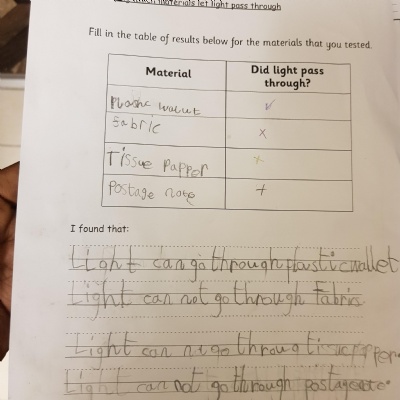 which materials let light pass through
Fill in the table of results below for the materials that you tested.
Material Did light pass through?
Plastic walut ✓
fabric x
Tissue papper x
Postage note +
I found that:
Light can go through plasticwallet
Light can not go through fabric
Light can throug
Light can not go through postage